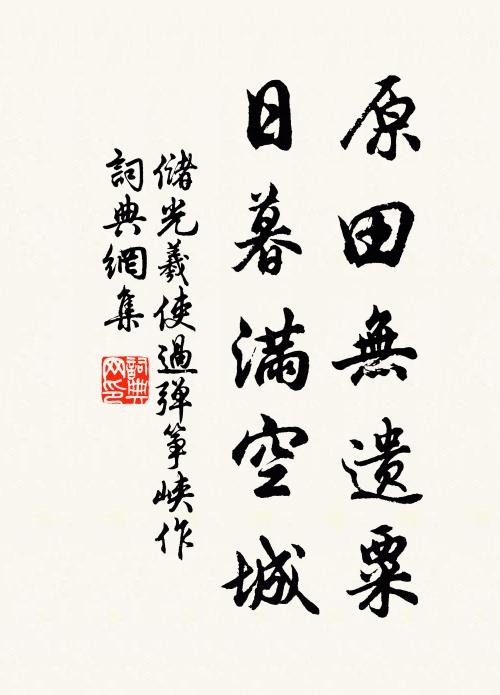 原田無遺粟
日暮滿空城
儲光羲使過彈箏峽作
詞典網集
詞典
网印